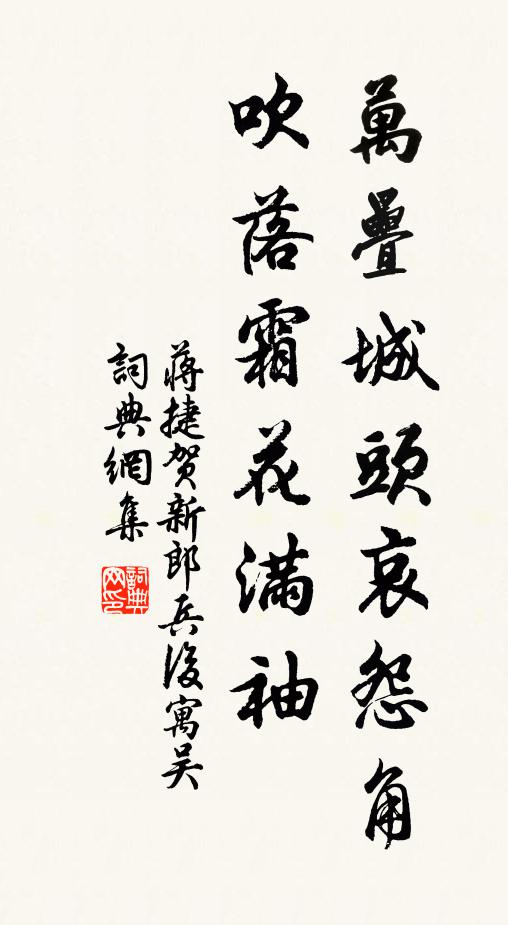 萬疊城頭哀怨角
吹落霜花滿袖
蔣捷賀新郎兵後寓吴
詞典網集
詞典网印